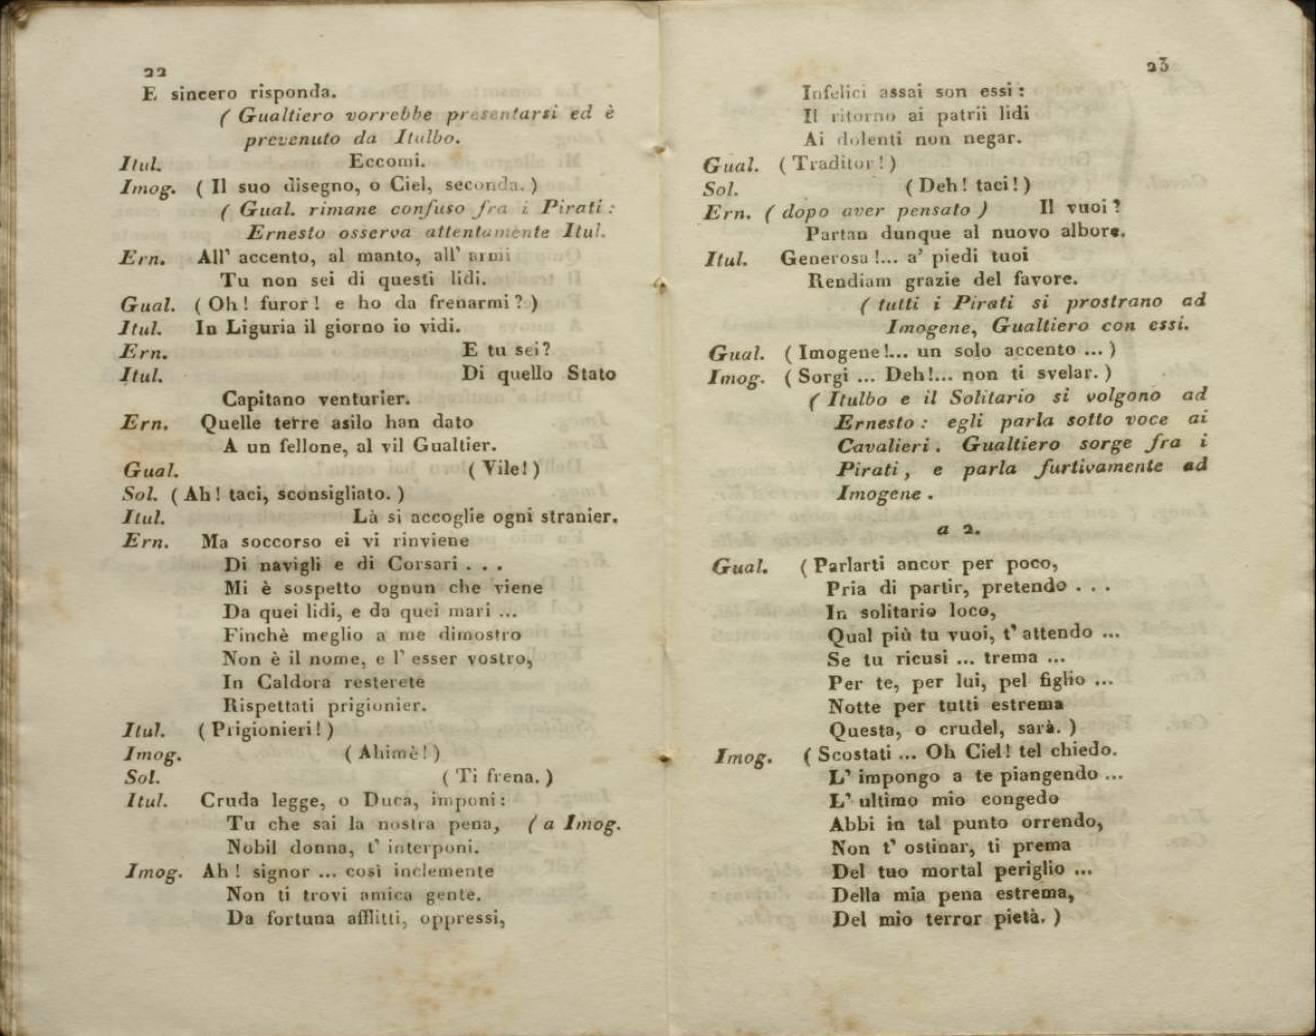 22
E sincero risponda.
( Gualtiero vorrebbe presentarsi ed è
prevenuto da Itulbo.
Itul. Eccomi.
Imog. ( Il suo disegno, o Ciel, seconda. )
( Gual. rimane confuso fra i Pirati :
Ernesto osserva attentamente Itul.
Ern. All' accento, al manto, all' armi
Tu non sei di questi lidi.
Gual. ( Oh ! furor ! e ho da frenarmi ? )
Itul. In Liguria il giorno io vidi.
Ern. E tu sei ?
Itul. Di quello Stato
Capitano venturier.
Ern. Quelle terre asilo han dato
A un fellone, al vil Gualtier.
Gual. ( Vile! )
Sol. ( Ah ! taci, sconsigliato. )
Itul. Là si accoglie ogni stranier.
Ern. Ma soccorso ei vi rinviene
Di navigli e di Corsari . . .
Mi è sospetto ognun che viene
Da quei lidi, e da quei mari ...
Finchè meglio a me dimostro
Non è il nome, e l' esser vostro,
In Caldora resterete
Rispettati prigionier.
Itul. ( Prigionieri ! )
Imog. ( Ahimè ! )
Sol. ( Ti frena. )
Itul. Cruda legge, o Duca, imponi :
Tu che sai la nostra pena, ( a Imog.
Nobil donna, t' interponi.
Imog. Ah ! signor ... così inclemente
Non ti trovi amica gente.
Da fortuna afflitti, oppressi,
23
Infelici assai son essi :
Il ritorno ai patrii lidi
Ai dolenti non negar.
Gual. ( Traditor ! )
Sol. ( Deh ! taci ! )
Ern. ( dopo aver pensato ) Il vuoi ?
Partan dunque al nuovo albore.
Itul. Generosa !... a' piedi tuoi
Rendiam grazie del favore.
( tutti i Pirati si prostrano ad
Imogene, Gualtiero con essi.
Gual. ( Imogene !... un solo accento ... )
Imog. ( Sorgi ... Deh !... non ti svelar. )
( Itulbo e il Solitario si volgono ad
Ernesto : egli parla sotto voce ai
Cavalieri . Gualtiero sorge fra i
Pirati , e parla furtivamente ad
Imogene .
a 2.
Gual. ( Parlarti ancor per poco,
Pria di partir, pretendo . . .
In solitario loco,
Qual più tu vuoi, t' attendo ...
Se tu ricusi ... trema ...
Per te, per lui, pel figlio ...
Notte per tutti estrema
Questa, o crudel, sarà. )
Imog. ( Scostati ... Oh Ciel ! tel chiedo.
L' impongo a te piangendo ...
L' ultimo mio congedo
Abbi in tal punto orrendo,
Non t' ostinar, ti prema
Del tuo mortal periglio ...
Della mia pena estrema,
Del mio terror pietà. )